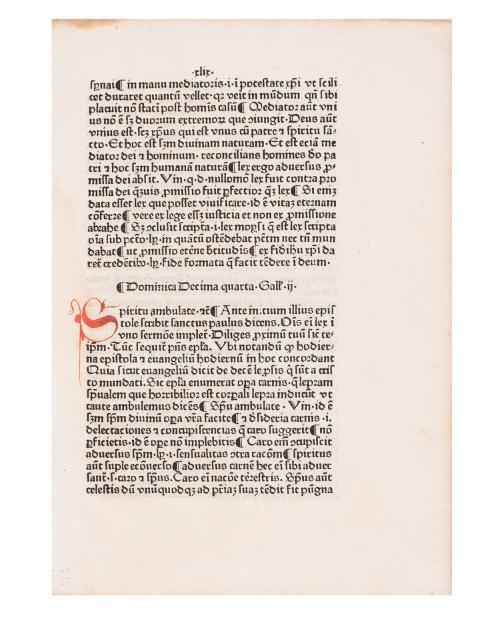 ·xlix·
sp̄nai¶ in manu mediatoris·i·ī potestate xp̄i vt scili
cet duraret quantū vellet·qꝛ veit in mūdum qn̄ sibi
placuit nō statī post homīs casū¶ Mediator aūt vni
us nō ē sꝫ duorum extremoꝝ que ↄiungit·Deus aūt
vnus est·sez xp̄us qui est vnus cū patre ⁊ spiritu sā-
cto·Et hoc est sꝫm diuinam naturam·Et est eciā me
diator dei ⁊ hominum·reconcilians homines dō pa
tri ⁊ hoc sꝫm humanā naturā¶ lex ergo aduersus ꝓ-
missa dei absit. Vin·q·d·nullomō lex fuit contra pro
missa dei q̄uis ꝓmissio fuit ꝑfectior q̄ꝫ lex¶ Si enīꝫ
data esset lex que posset viuificare·id ē vitaꝫ eternam
cōferze¶ vere ex lege essꝫ iusticia et non ex ꝓmissione
abrahe ¶ Sꝫ ↄclusit scripta·i·lex moysi q̄ est lex scripta
oīa sub pctō·
in quātū ostēdebat pctm nec tn̄ mun
dabat¶ ut ꝓmissio etēne bt̄itudīs¶ ex fidihu xp̄i da
ret credētibꝰ·
fide formata q̄ facit tēdere ī deum·
¶ Dominica Decima quarta· Gall'·ij·
Spiritu ambulate·⁊c̄¶ Ante inicium illius epis
tole scribit sanctus paulus dicens·Oīs eī lex ī
vno sermōe impletr̄·Diliges ꝓximū tuū sic te-
ipm̄·Tūc sequit̄ pn̄s epl̄a. Vbi notandū ꝙ hodier-
na epistola ⁊ euangeliū hodiernū in hoc concordant
Quia sicut euangeliū dicit de decē lepsis q̄ sūt a cris
to mundati. Sic epl̄a enumerat oꝑa carnis·q̄ lepram
sp̄ualem que horribilior est corꝑali lepra inducūt vt
caute ambulemus dicēs¶ Spū ambulate·Vin·id ē
sꝫm spm̄ diuinū oꝑa vr̄a facite¶ ⁊ dsideria carnis·i·
delectaciones ⁊ concupiscencias q̄ caro suggerit¶ nō
ꝑficietis·id ē oꝑe nō implebitis¶ Caro enī ↄcupiscit
aduersus spm̄·
·i·sensualitas ↄtra racōm¶ spiritus
aūt suple ecōuerso¶aduersus carnē hec eī sibi aduer
sant̄·s·caro ⁊ sp̄us. Caro eī nacōe terestris. Sp̄us aūt
celestis dū vnūquodqꝫ ad pr̄iaꝫ suaꝫ tēdit fit pūgna